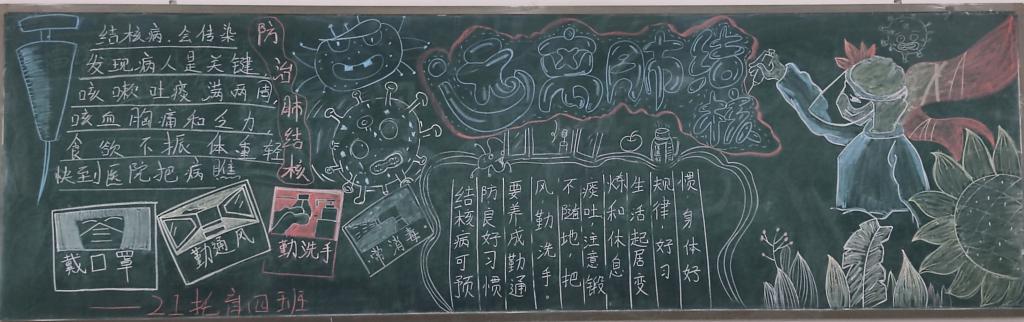 结核病,会传染
发现病人是关键
咳嗽吐痰满两周,
咳血胸痛和乏力
食欲不振体重轻
快到医院把病瞧
防治肺结核
远离肺结核
戴口罩
勤通风
勤洗手
常消毒
——21托育四班
结核病可预
防良好习惯
要养成勤通
风,勤洗手。
不随地,把
痰吐,注意锻
炼和休息
生活起居变
规律,好习
惯身体好